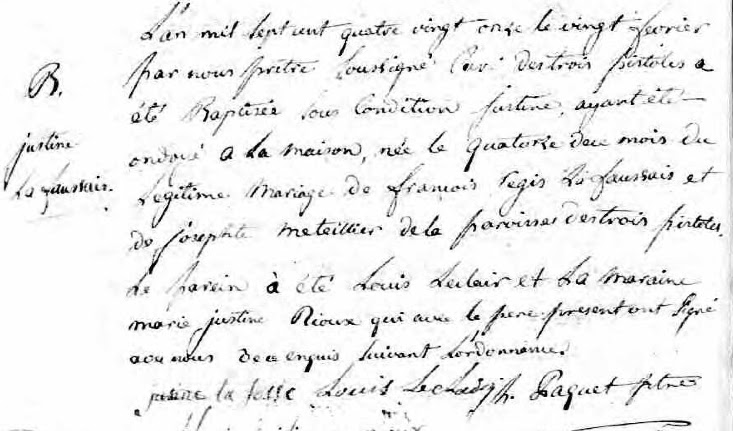 L'an mil sept cent quatre vingt onze le vingt fevrier
par nous prêtre soussigné Curé des trois pistoles a
B.
été Baptisée sous Condition justine, ayant été
justine
ondoyé a La maison, née le quatorze du mois du
La faussais.
Legitime Mariage de francois regis La faussais et
de josephte meteillier de la paroisse des trois pistoles.
Le parein à été Louis Leclair et La maraine
marie justine Rioux qui avec le pere present ont signé
avec nous de ce enquis suivant L'ordonnance.
la fosse Louis LeClair j. Paquet ptre